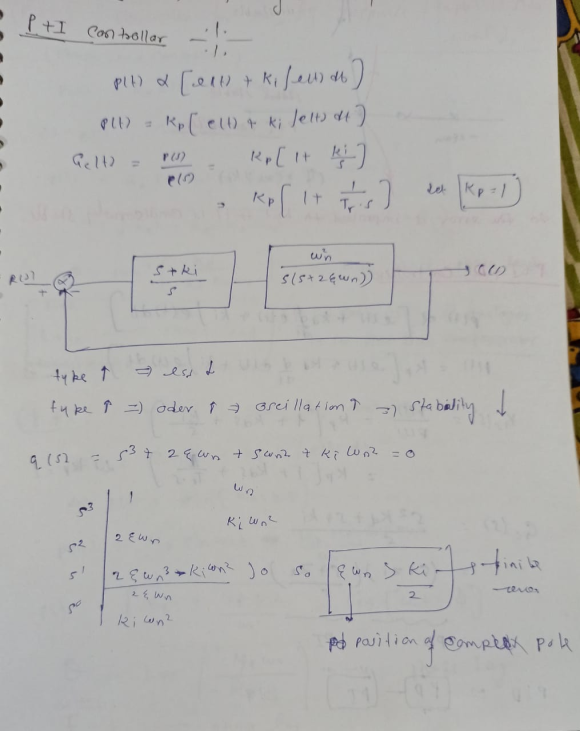 P+I Controller
p(t) α [e(t) + Ki ∫e(t) dt]
p(t) = Kp [e(t) + Ki ∫e(t) dt]
Gc(t) = P(s)/e(s) = Kp [1 + Ki/s]
= Kp [1 + 1/(Tr.s)] let Kp = 1
R(s) + - (s+Ki)/s ωn²/(s(s+2ξωn)) C(s)
type ↑ ⇒ ess ↓
type ↑ ⇒ oder ↑ ⇒ oscillation ↑ ⇒ stability ↓
q(s) = s³ + 2ξωn + sωn² + Ki ωn² = 0
s³ 1 ωn
s² 2ξωn Ki ωn²
s¹ (2ξωn³ - Ki ωn²)/(2ξωn) >0 So ξωn > Ki/2 → finite
s⁰ Ki ωn²
position of complex pole